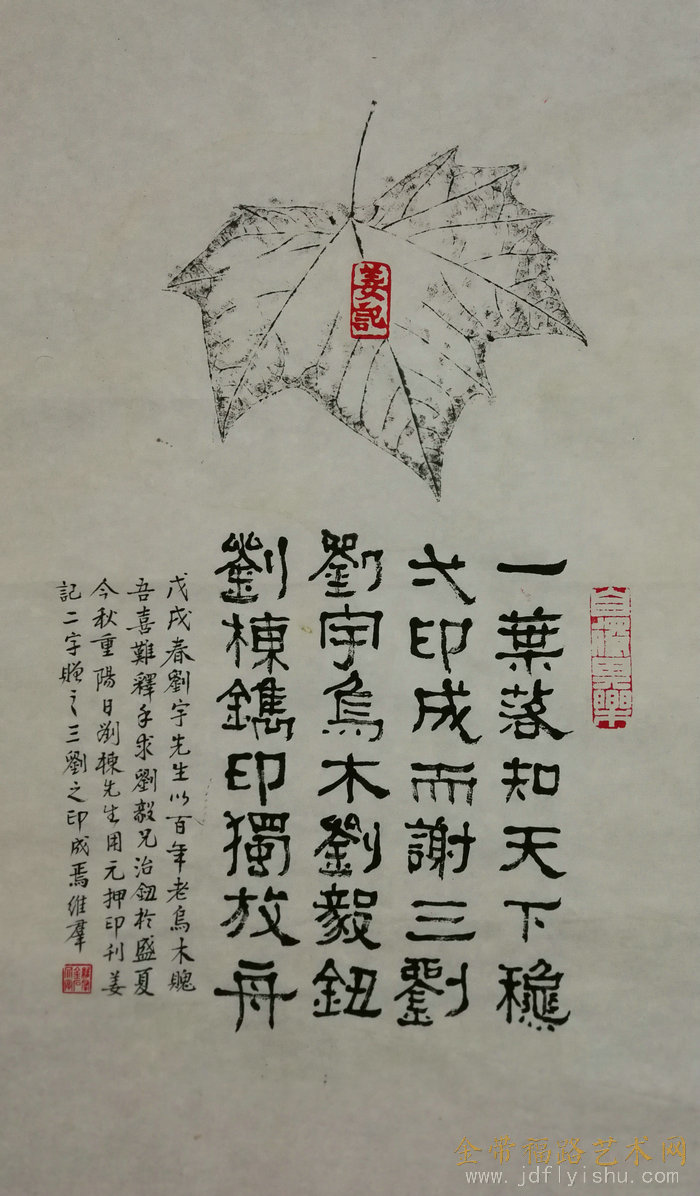 姜記
一葉落知天下穐
弌印成而謝三劉
劉宇烏木劉毅鈕
劉棟鐫印獨放舟
戊戌春劉宇先生以百年老烏木
吾喜難釋手求劉毅兄治鈕於盛夏
今秋重陽日劉棟先生用元押印刊姜
記二字贈之三劉之印成焉維羣
金带福路艺术网
www.jdflyishu.com